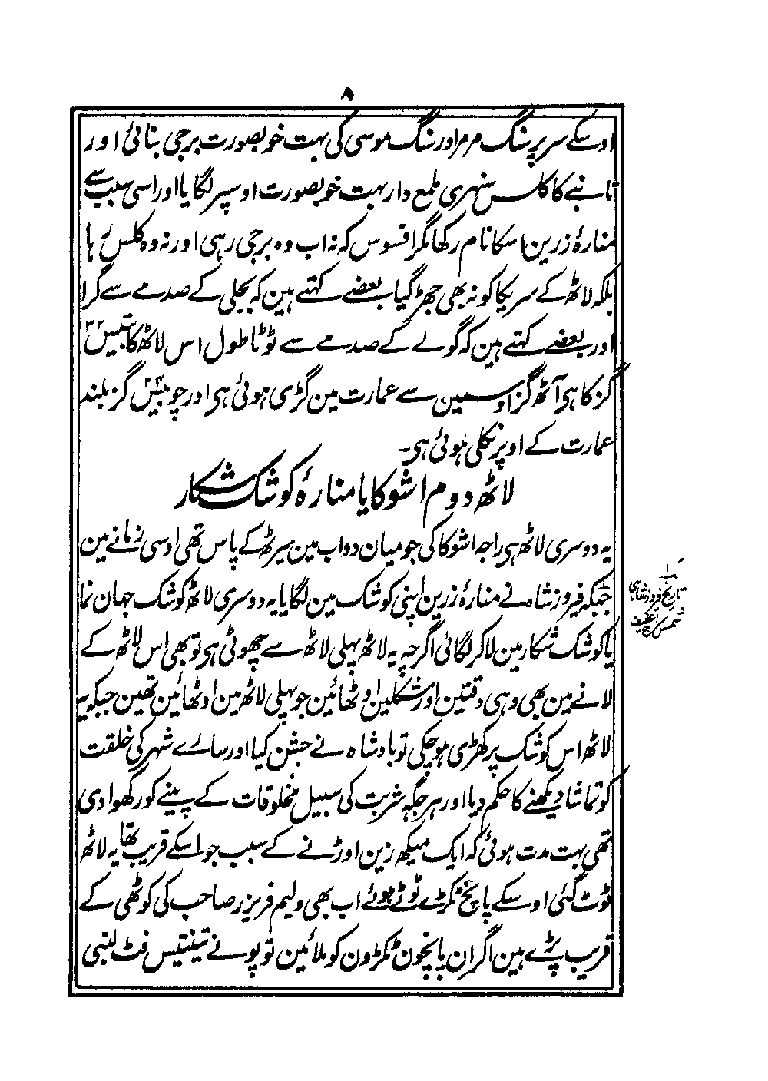 ۸
اوسکے سر پر سنگ مرمر اور سنگ موسی کی بہت خوبصورت برجی بنائی اور
تانبے کا کلس سنہری ملمع دار بہت خوبصورت اوسپر لگایا اور اسی سبب سے
منارۂ زرین اسکا نام رکھا مگر افسوس کہ نہ اب وہ برجی رہی اور نہ وہ کلس رہا
بلکہ لاٹھ کے سر یکا کونہ بھی جھڑ گیا بعضے کہتے ہین کہ بجلی کے صدمے سے گرا
اور بعضے کہتے ہین کہ گولے کے صدمے سے ٹوٹا طول اس لاٹھ کا بتیس ۳۲
گز کا ہی آٹھ گز اوسمین سے عمارت مین گڑی ہوئی ہی اور چوبیس ۲۴ گز بلند
عمارت کے اوپر نکلی ہوئی ہی۔
لاٹھ دوم اشوکا یا منارۂ کوشک شکار
یہ دوسری لاٹھ ہی راجہ اشوکا کی جو میان دواب مین میرٹھ کے پاس تھی اوسی زمانے مین
جبکہ فیروز شاہ نے منارۂ زرین اپنی کوشک مین لگایا یہ دوسری لاٹھ کوشک جہان نما
یا کوشک شکار مین لاکر لگائی اگرچہ یہ لاٹھ پہلی لاٹھ سے چھوٹی ہی تو بھی اس لاٹھ کے
لانے مین بھی وہی دقتین اور مشکلین اوٹھائین جو پہلی لاٹھ مین اوٹھائین تھین جبکہ یہ
لاٹھ اس کوشک پر کھڑی ہو چکی تو بادشاہ نے جشن کیا اور سارے شہر کی خلقت
کو تماشا دیکھنے کا حکم دیا اور ہر جگہ شربت کی سبیل مخلوقات کے پینے کو رکھوا دی
تھی بہت مدت ہوئی کہ ایک میکھ زین اوڑنے کے سبب جو اسکے قریب تھا یہ لاٹھ
ٹوٹ گئی اوسکے پانچ ٹکڑے ٹوٹے ہوئے اب بھی ولیم فریزر صاحب کی کوٹھی کے
قریب پڑے ہین اگر ان پانچون ٹکڑون کو ملائین تو پونے تینتیس فٹ لنبی
تاریخ فیروز شاہی
شمس سراج عفیف